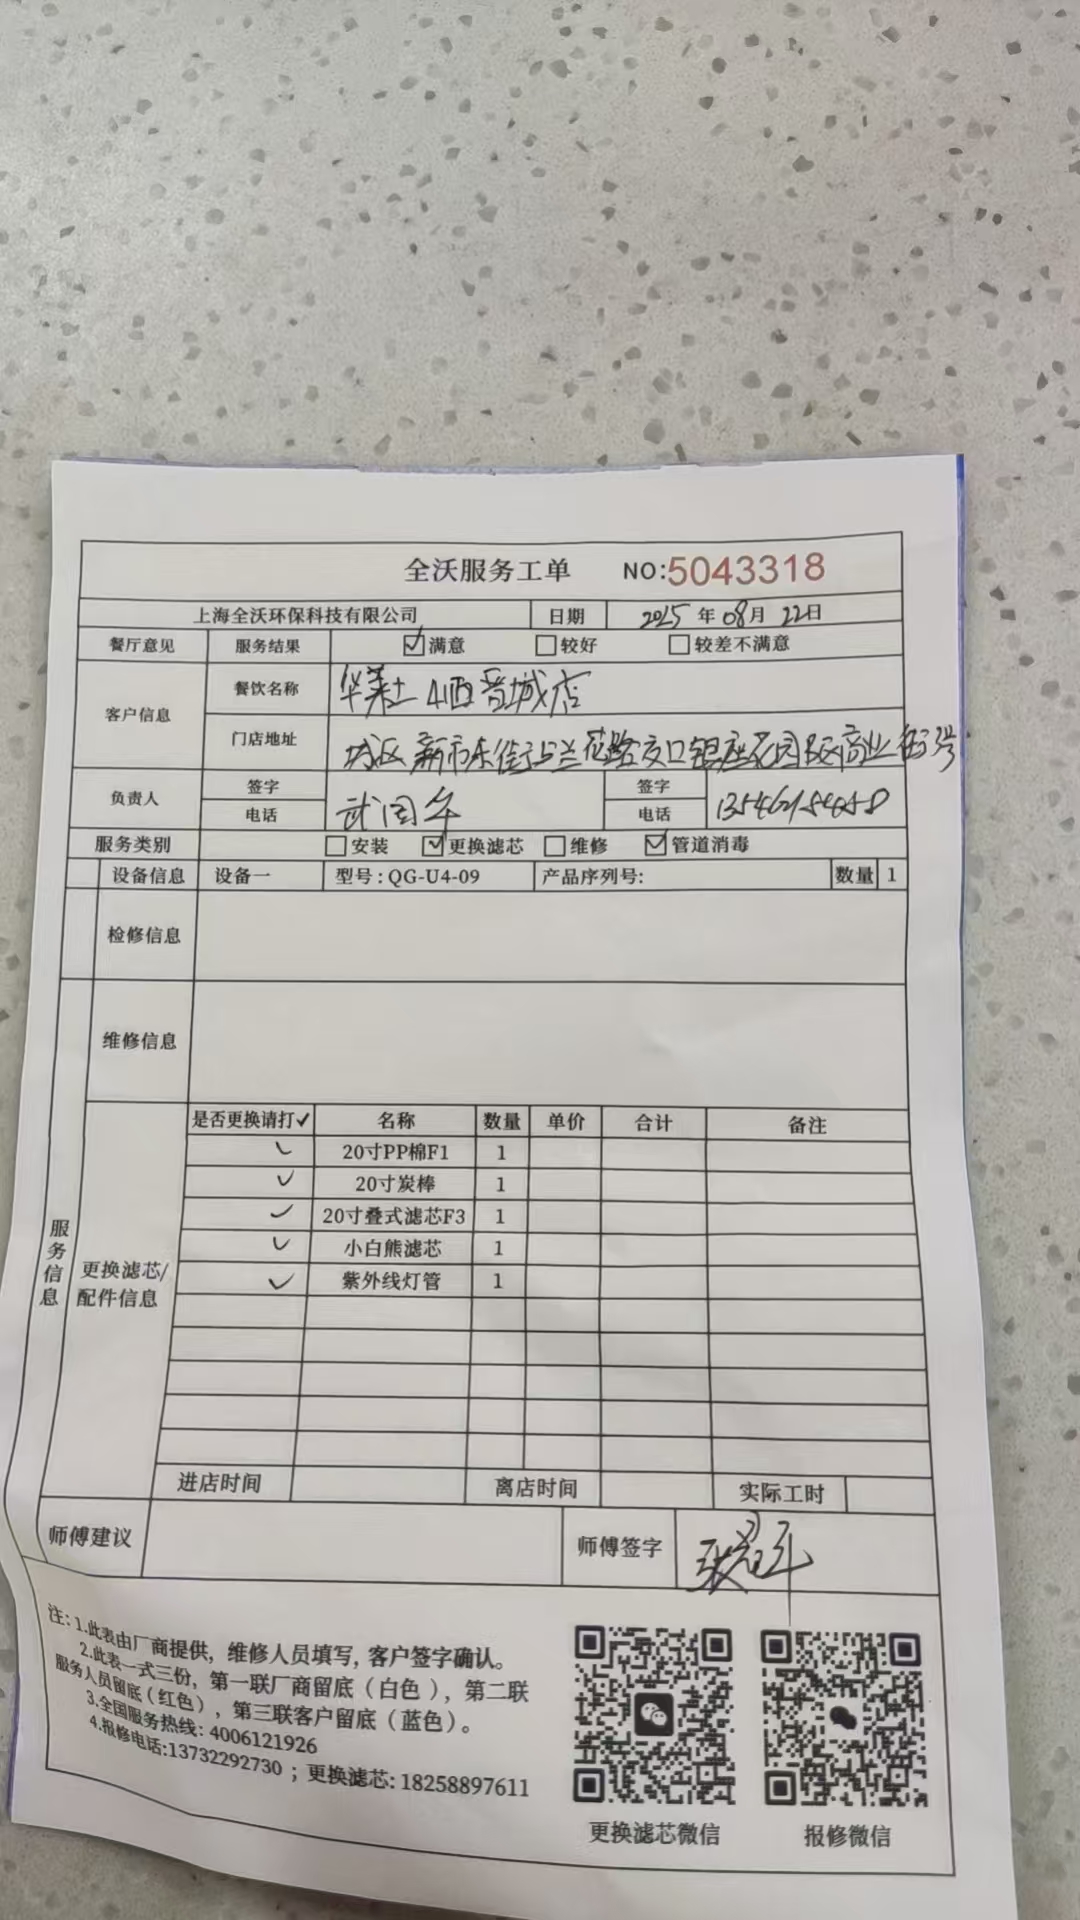 全沃服务工单 NO:5043318
上海全沃环保科技有限公司 日期 2025年08月22日
餐厅意见 服务结果 ☑满意 ☐较好 ☐较差不满意
客户信息 餐饮名称 华莱士山西晋城店
门店地址 城区新市东街与兰花路交口银座花园B区商业街3号
负责人 签字 签字
电话 武国年 电话 13546915405
服务类别 ☐安装 ☑更换滤芯 ☐维修 ☑管道消毒
设备信息 设备一 型号:QG-U4-09 产品序列号: 数量 1
检修信息
维修信息
服务信息
更换滤芯/配件信息
是否更换请打✓ 名称 数量 单价 合计 备注
✓ 20寸PP棉F1 1
✓ 20寸炭棒 1
✓ 20寸叠式滤芯F3 1
✓ 小白熊滤芯 1
✓ 紫外线灯管 1
进店时间 离店时间 实际工时
师傅建议 师傅签字
注:1.此表由厂商提供，维修人员填写，客户签字确认。
2.此表一式三份，第一联厂商留底（白色），第二联
服务人员留底（红色），第三联客户留底（蓝色）。
3.全国服务热线: 4006121926
4.报修电话:13732292730；更换滤芯: 18258897611
更换滤芯微信 报修微信